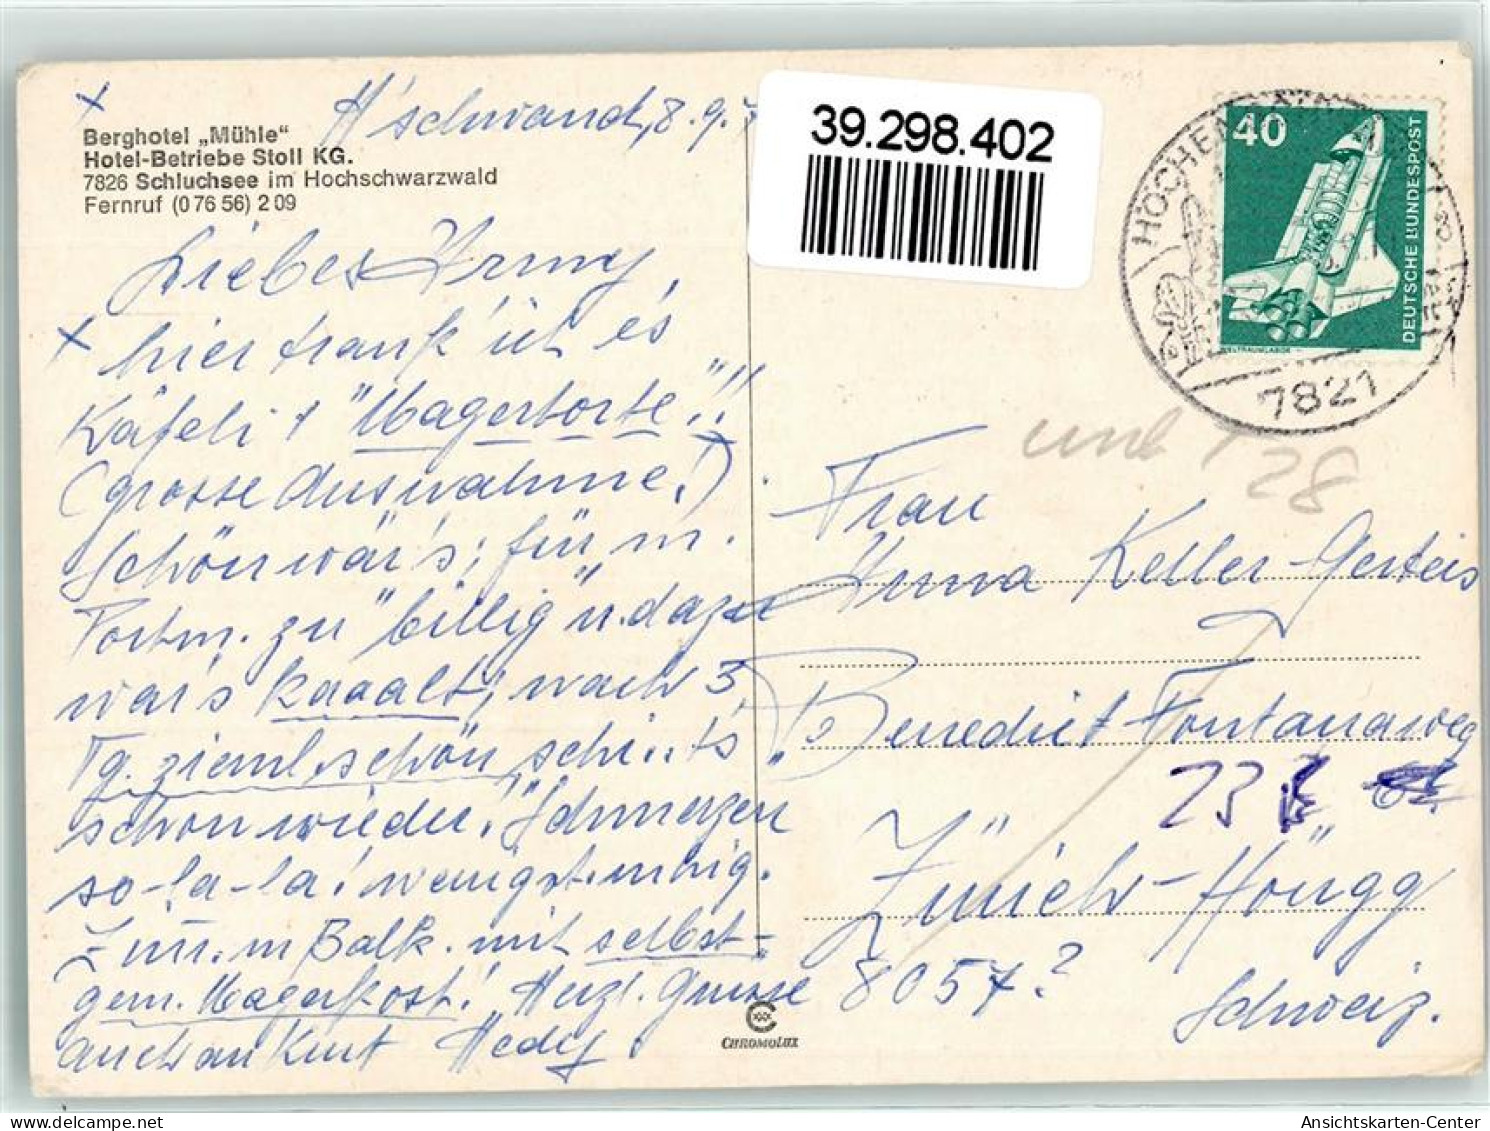 x
Berghotel „Mühle“
Hotel-Betriebe Stoll KG.
7826 Schluchsee im Hochschwarzwald
Fernruf (0 76 56) 2 09
H'schwand, 8.9.7
39.298.402
40
DEUTSCHE BUNDESPOST
WELTRAUMLABOR
7821
Liebes Anny,
x hier trank' ich es
Käfeli 1 "Magertorte"!!
(grosse Auswahme!)
Schön wär's; für m.
Portm. zu "billig" u. dazu
war's kaaalt; nach 3
Tg. zieml. schön schi..ts
schon wieder! Schmerzen
so-la-la! wenigst.
Zim. m Balk. mit selbst-
gem. Magerkost! Herzl. Grüsse
auch an Kurt Hedy.
28
Frau
Anna Keller-Gersteis
Benedict Fontanaweg
23
Zürich-Höngg
8057?
Schweiz.
CHROMOLUX
Ansichtskarten-Center